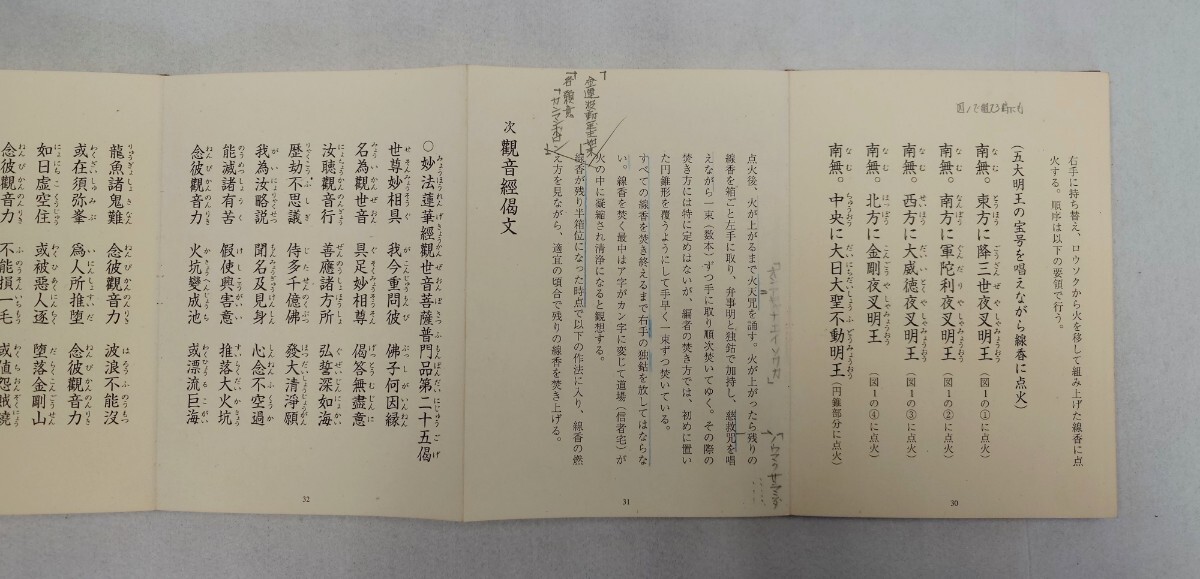 右手に持ち替え、ロウソクから火を移して組み上げた線香に点
火する。順序は以下の要領で行う。
(五大明王の宝号を唱えながら線香に点火)
南無。東方に降三世夜叉明王(図1の①に点火)
南無。南方に軍陀利夜叉明王(図1の②に点火)
南無。西方に大威徳夜叉明王(図1の③に点火)
南無。北方に金剛夜叉明王(図1の④に点火)
南無。中央に大日大聖不動明王(円錐部分に点火)
30
点火後、火が上がるまで火天呪を誦す。火が上がったら残りの
線香を箱ごと左手に取り、弁事明と独鈷で加持し、慈救呪を唱
えながら一束(数本)ずつ手に取り順次焚いてゆく。その際の
焚き方には特に定めはないが、編者の焚き方では、初めに置い
た円錐形を覆うようにして手早く一束ずつ焚いている。
すべての線香を焚き終えるまで右手の独鈷を放してはならな
い。線香を焚く最中はア字がカン字に変じて道場(信者宅)が
火の中に凝縮され清浄になると観想する。
線香が残り半箱位になった時点で以下の作法に入り、線香の燃
え方を見ながら、適宜の頃合で残りの線香を焚き上げる。
次 觀音經偈文
31
○妙法蓮華經觀世音菩薩普門品第二十五偈
世尊妙相具 我今重問彼 佛子何因縁
名為觀世音 具足妙相尊 偈答無盡意
汝聽觀音行 善應諸方所 弘誓深如海
歴劫不思議 侍多千億佛 發大清淨願
我為汝略説 聞名及見身 心念不空過
能滅諸有苦 假使興害意 推落大火坑
念彼觀音力 火坑變成池 或漂流巨海
32
龍魚諸鬼難 念彼觀音力 波浪不能沒
或在須弥峯 爲人所推堕 念彼觀音力
如日虚空住 或被惡人逐 堕落金剛山
念彼觀音力 不能損一毛 或値怨賊繞